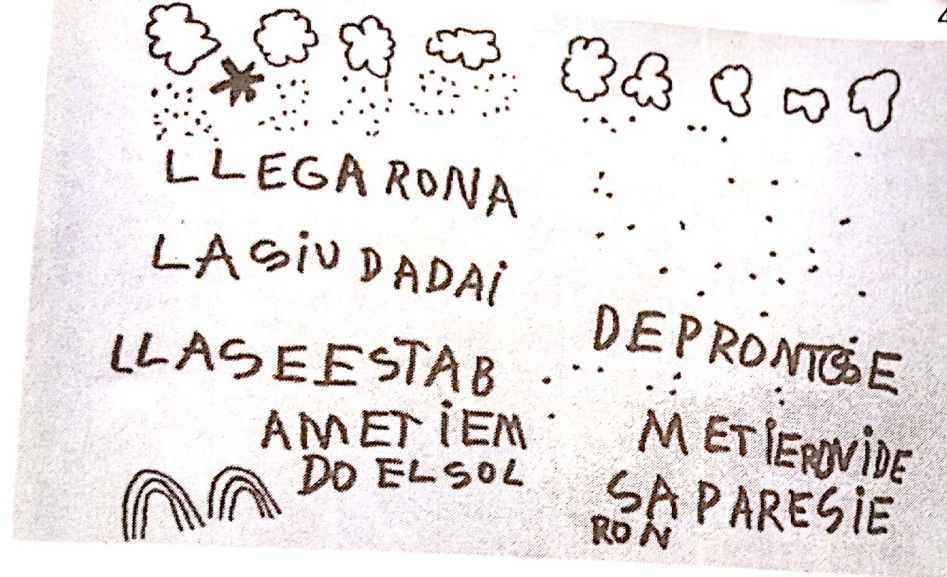 LLEGA RONA
LA SiU DADAi
LLASEESTAB
AMETiEM
DO ELSOL
DEPRONTOSE
METiERONViDE
SAPARESiE
RON